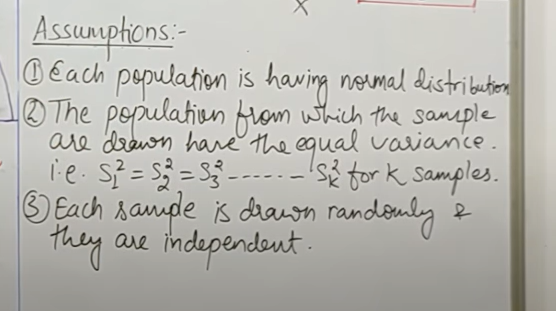 Assumptions:-
① Each population is having normal distribution
② The population from which the sample
are drawn have the equal variance.
i.e. S₁² = S₂² = S₃² ------- Sₖ² for k samples.
③ Each sample is drawn randomly &
they are independent.